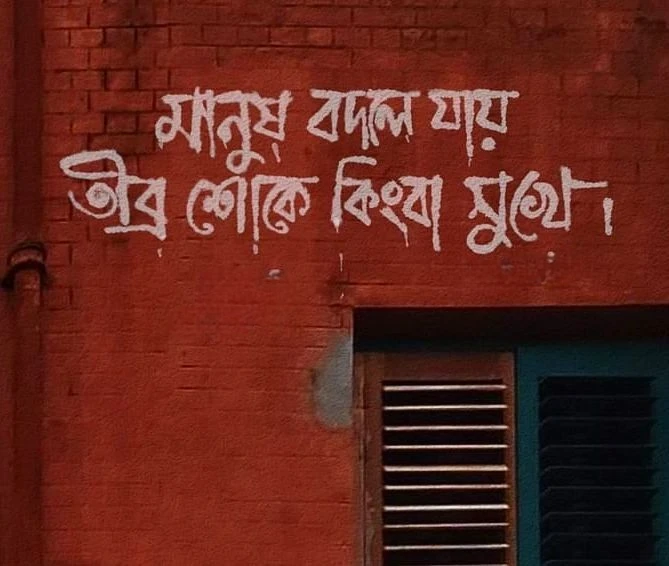 মানুষ বদলে যায়
তীব্র শোকে কিংবা সুখে।